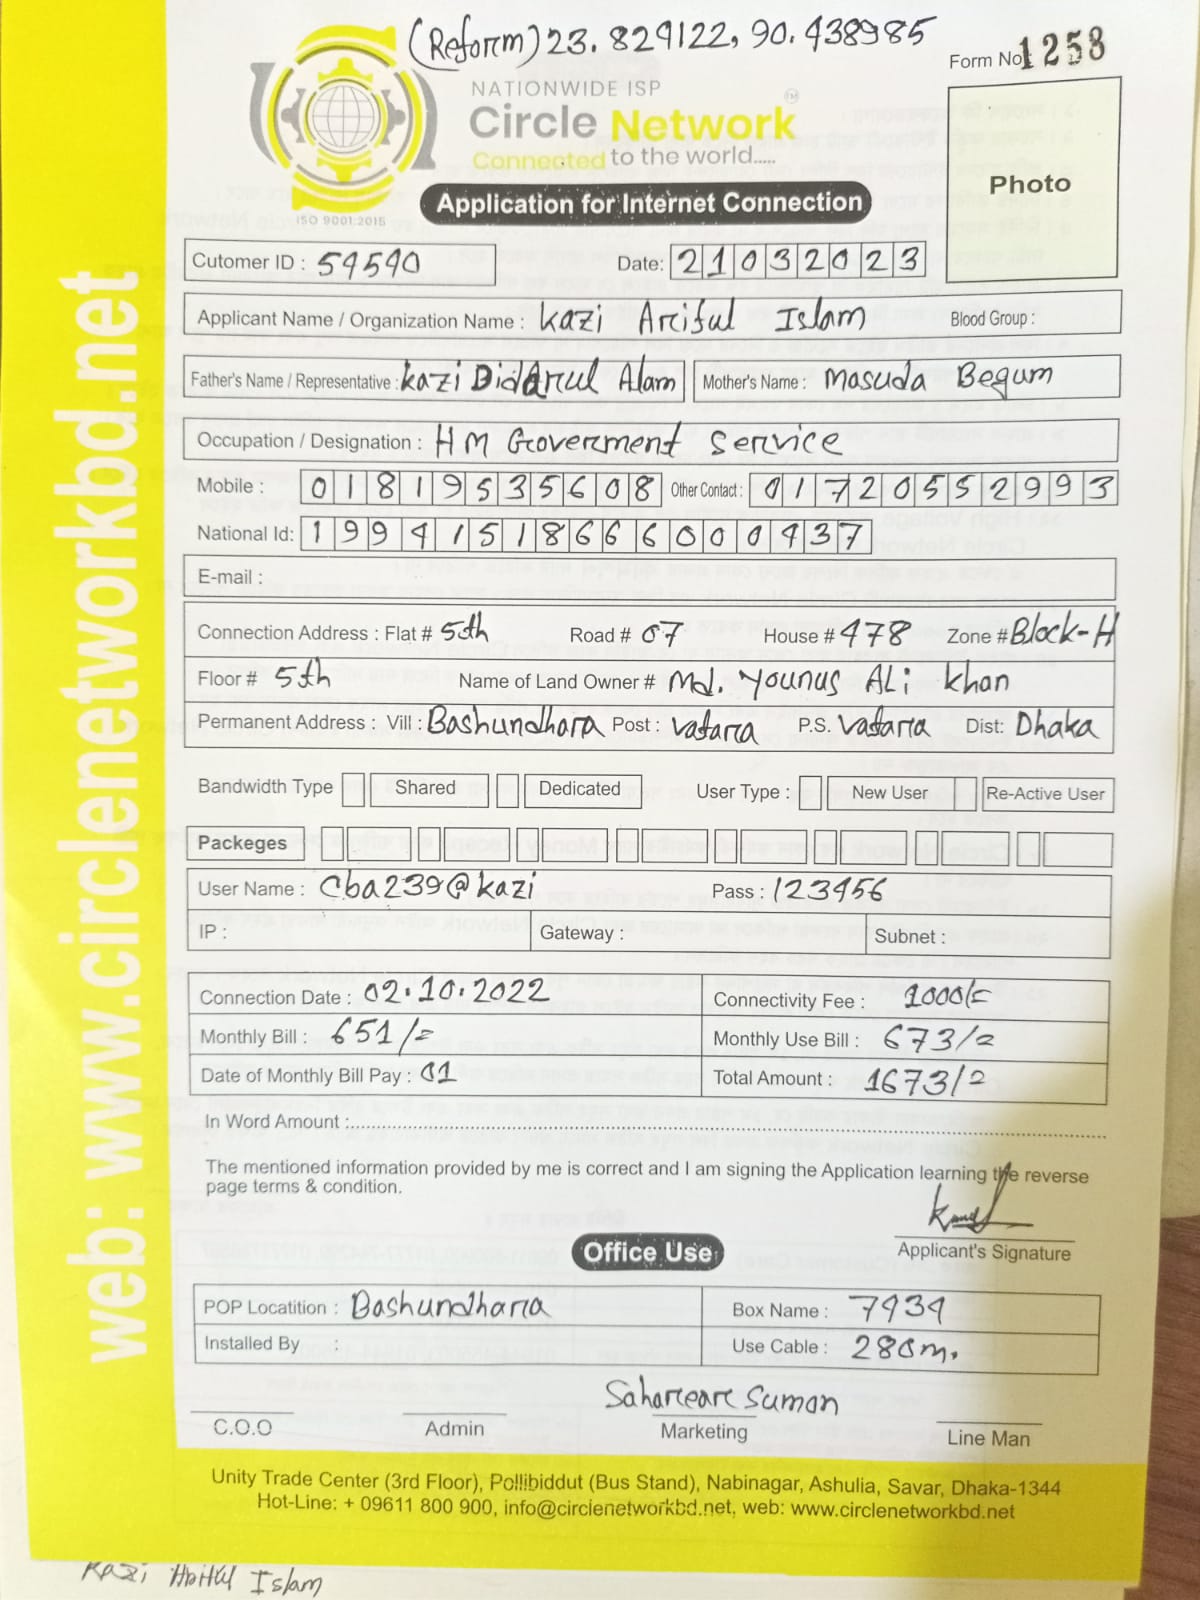 (Reform) 23.829122, 90.438985
Form No: 1258
NATIONWIDE ISP
Circle Network TM
Connected to the world.....
ISO 9001:2015
Application for Internet Connection
Photo
Cutomer ID : 54590 Date: 21032023
Applicant Name / Organization Name : Kazi Ariful Islam Blood Group :
Father's Name / Representative : Kazi Didarul Alam Mother's Name : Masuda Begum
Occupation / Designation : HM Goverment Service
Mobile : 01819535608 Other Contact : 01720552993
National Id: 19941518666000437
E-mail :
Connection Address : Flat # 5th Road # 07 House # 478 Zone # Block-H
Floor # 5th Name of Land Owner # Md. Younus ALi Khan
Permanent Address : Vill : Bashundhara Post : Vatara P.S. Vatara Dist: Dhaka
Bandwidth Type Shared Dedicated User Type : New User Re-Active User
Packeges
User Name : Cba239@kazi Pass : 123456
IP : Gateway : Subnet :
Connection Date : 02.10.2022 Connectivity Fee : 1000/=
Monthly Bill : 651/= Monthly Use Bill : 673/=
Date of Monthly Bill Pay : 01 Total Amount : 1673/=
In Word Amount :
The mentioned information provided by me is correct and I am signing the Application learning the reverse
page terms & condition.
Applicant's Signature
Office Use
POP Locatition : Bashundhara Box Name : 7434
Installed By : Use Cable : 280m.
Sahareare Suman
C.O.O Admin Marketing Line Man
Unity Trade Center (3rd Floor), Pollibiddut (Bus Stand), Nabinagar, Ashulia, Savar, Dhaka-1344
Hot-Line: + 09611 800 900, info@circlenetworkbd.net, web: www.circlenetworkbd.net
Kazi Islam
web: www.circlenetworkbd.net